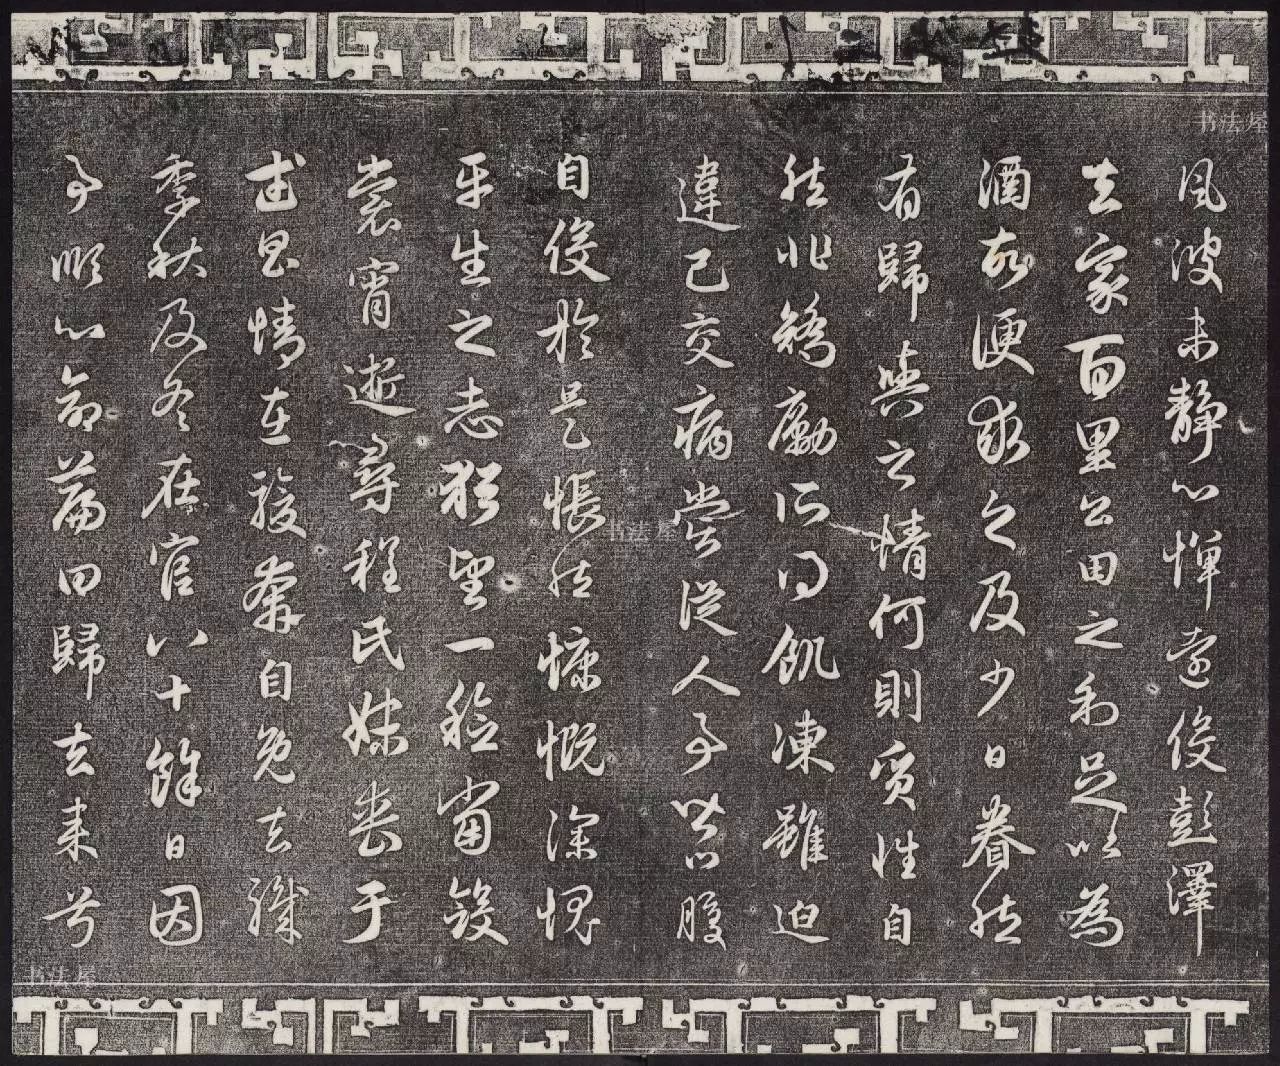 風波未靜心憚遠役彭澤
去家百里公田之利足以為
酒故便求之及少日眷然
有歸與之情何則質性自
然非矯勵所得飢凍雖迫
違己交病嘗從人事皆口腹
自役於是悵然慷慨深愧
平生之志猶望一稔當斂
裳宵逝尋程氏妹喪于
武昌情在駿奔自免去職
季秋及冬在官八十餘日因
事順心命篇曰歸去來兮
书法屋
书法屋
书法屋